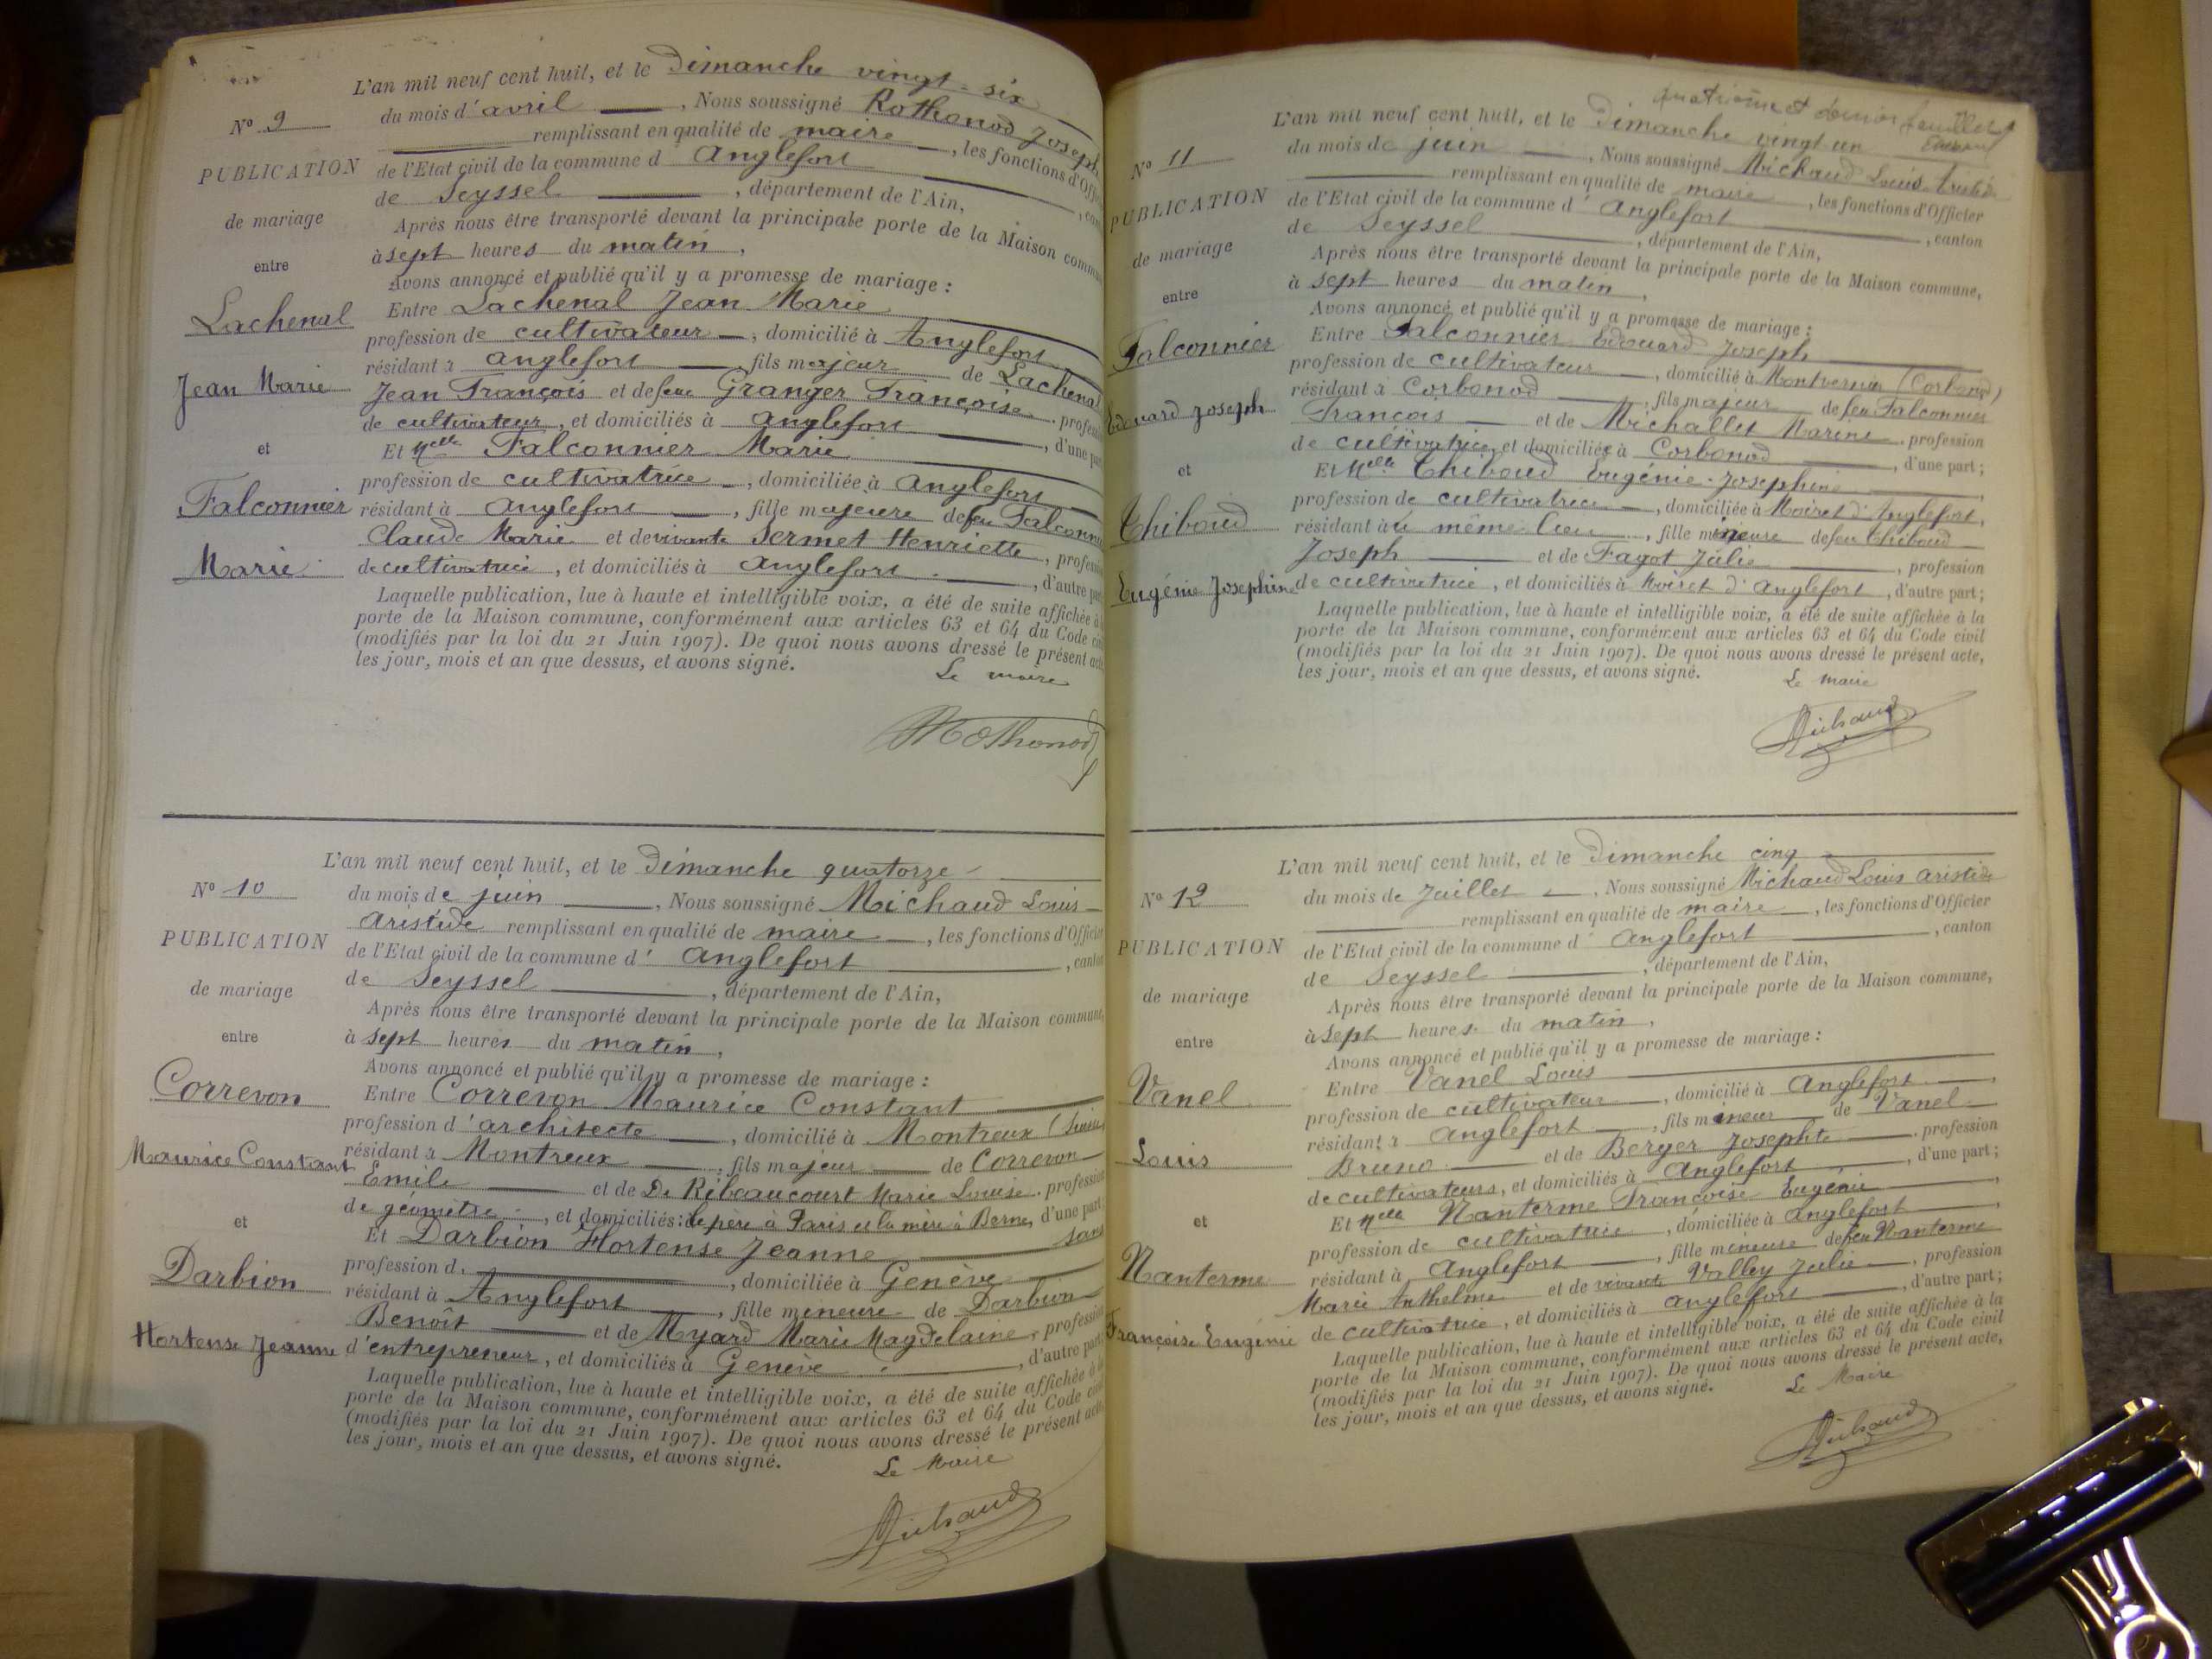 L'an mil neuf cent huit, et le Dimanche vingt-six
N° 9
du mois d'avril, Nous soussigné Rothonod Joseph
remplissant en qualité de maire, les fonctions d'Offi
PUBLICATION
de l'Etat civil de la commune d Anglefort, can
de Seyssel, département de l'Ain,
de mariage
Après nous être transporté devant la principale porte de la Maison commu
à sept heures du matin,
entre
Avons annoncé et publié qu'il y a promesse de mariage :
Lachenal
Entre Lachenal Jean Marie
profession de cultivateur, domicilié à Anglefort
résidant à Anglefort fils majeur de Lachenal
Jean Marie
Jean François et de feue Granger Françoise, profes
de cultivateur, et domiciliés à Anglefort, d'une pa
et
Et Melle Falconnier Marie
profession de cultivatrice, domiciliée à Anglefort
Falconnier
résidant à Anglefort, fille majeure de feu Falconn
Claude Marie et de vivante Sermet Henriette, professi
Marie
de cultivatrice, et domiciliés à Anglefort, d'autre par
Laquelle publication, lue à haute et intelligible voix, a été de suite affichée à
porte de la Maison commune, conformément aux articles 63 et 64 du Code ci
(modifiés par la loi du 21 Juin 1907). De quoi nous avons dressé le présent act
les jour, mois et an que dessus, et avons signé.
Le maire
Rothonod
L'an mil neuf cent huit, et le Dimanche quatorze
N° 10
du mois de juin, Nous soussigné Michaud Louis
Aristide remplissant en qualité de maire, les fonctions d'Officier
PUBLICATION
de l'Etat civil de la commune d' Anglefort, canton
de Seyssel, département de l'Ain,
de mariage
Après nous être transporté devant la principale porte de la Maison commune,
entre
à sept heures du matin,
Avons annoncé et publié qu'il y a promesse de mariage :
Correvon
Entre Correvon Maurice Constant
profession d'architecte, domicilié à Montreux (Suisse
Maurice Constant
résidant à Montreux, fils majeur de Correvon
Emile et de De Ribeaucourt Marie Louise, profession
de géomètre, et domiciliés : le père à Paris et la mère à Berne, d'une part
et
Et Darbion Hortense Jeanne sans
profession d., domiciliée à Genève
Darbion
résidant à Anglefort, fille mineure de Darbion
Benoît et de Myard Marie Magdelaine, profession
Hortense Jeanne
d'entrepreneur, et domiciliés à Genève, d'autre part
Laquelle publication, lue à haute et intelligible voix, a été de suite affichée à la
porte de la Maison commune, conformément aux articles 63 et 64 du Code civil
(modifiés par la loi du 21 Juin 1907). De quoi nous avons dressé le présent acte,
les jour, mois et an que dessus, et avons signé.
Le Maire
Michaud
quatrième et dernier feuillet
L'an mil neuf cent huit, et le Dimanche vingt un
N° 11
du mois de juin, Nous soussigné Michaud Louis Aristide
remplissant en qualité de maire, les fonctions d'Officier
PUBLICATION
de l'Etat civil de la commune d' Anglefort, canton
de Seyssel, département de l'Ain,
de mariage
Après nous être transporté devant la principale porte de la Maison commune,
entre
à sept heures du matin,
Avons annoncé et publié qu'il y a promesse de mariage :
Falconnier
Entre Falconnier Edouard Joseph
profession de cultivateur, domicilié à (Corbonod)
résidant à Corbonod, fils majeur de feu Falconnier
Edouard Joseph
François et de Michallet Marine, profession
de cultivatrice, et domiciliée à Corbonod, d'une part ;
et
Et Melle Thiboud Eugénie Josephine
profession de cultivatrice, domiciliée à Moiret d'Anglefort,
Thiboud
résidant au même lieu, fille mineure de feu Thiboud
Joseph et de Fagot Julie, profession
Eugénie Josephine
de cultivatrice, et domiciliés à Moiret d'Anglefort, d'autre part ;
Laquelle publication, lue à haute et intelligible voix, a été de suite affichée à la
porte de la Maison commune, conformément aux articles 63 et 64 du Code civil
(modifiés par la loi du 21 Juin 1907). De quoi nous avons dressé le présent acte,
les jour, mois et an que dessus, et avons signé.
Le maire
Michaud
L'an mil neuf cent huit, et le Dimanche cinq
N° 12
du mois de Juillet, Nous soussigné Michaud Louis Aristide
remplissant en qualité de maire, les fonctions d'Officier
PUBLICATION
de l'Etat civil de la commune d' Anglefort, canton
de Seyssel, département de l'Ain,
de mariage
Après nous être transporté devant la principale porte de la Maison commune,
entre
à sept heures du matin,
Avons annoncé et publié qu'il y a promesse de mariage :
Vanel
Entre Vanel Louis
profession de cultivateur, domicilié à Anglefort,
Louis
résidant à Anglefort, fils mineur de Vanel
Bruno et de Berger Josephte, profession
de cultivateurs, et domiciliés à Anglefort, d'une part ;
et
Et Melle Nanterme Françoise Eugénie,
profession de cultivatrice, domiciliée à Anglefort,
Nanterme
résidant à Anglefort, fille mineure de feu Nanterme
Marie Anthelme et de vivante Valley Julie, profession
Françoise Eugénie
de cultivatrice, et domiciliés à Anglefort, d'autre part ;
Laquelle publication, lue à haute et intelligible voix, a été de suite affichée à la
porte de la Maison commune, conformément aux articles 63 et 64 du Code civil
(modifiés par la loi du 21 Juin 1907). De quoi nous avons dressé le présent acte,
les jour, mois et an que dessus, et avons signé.
Le Maire
Michaud